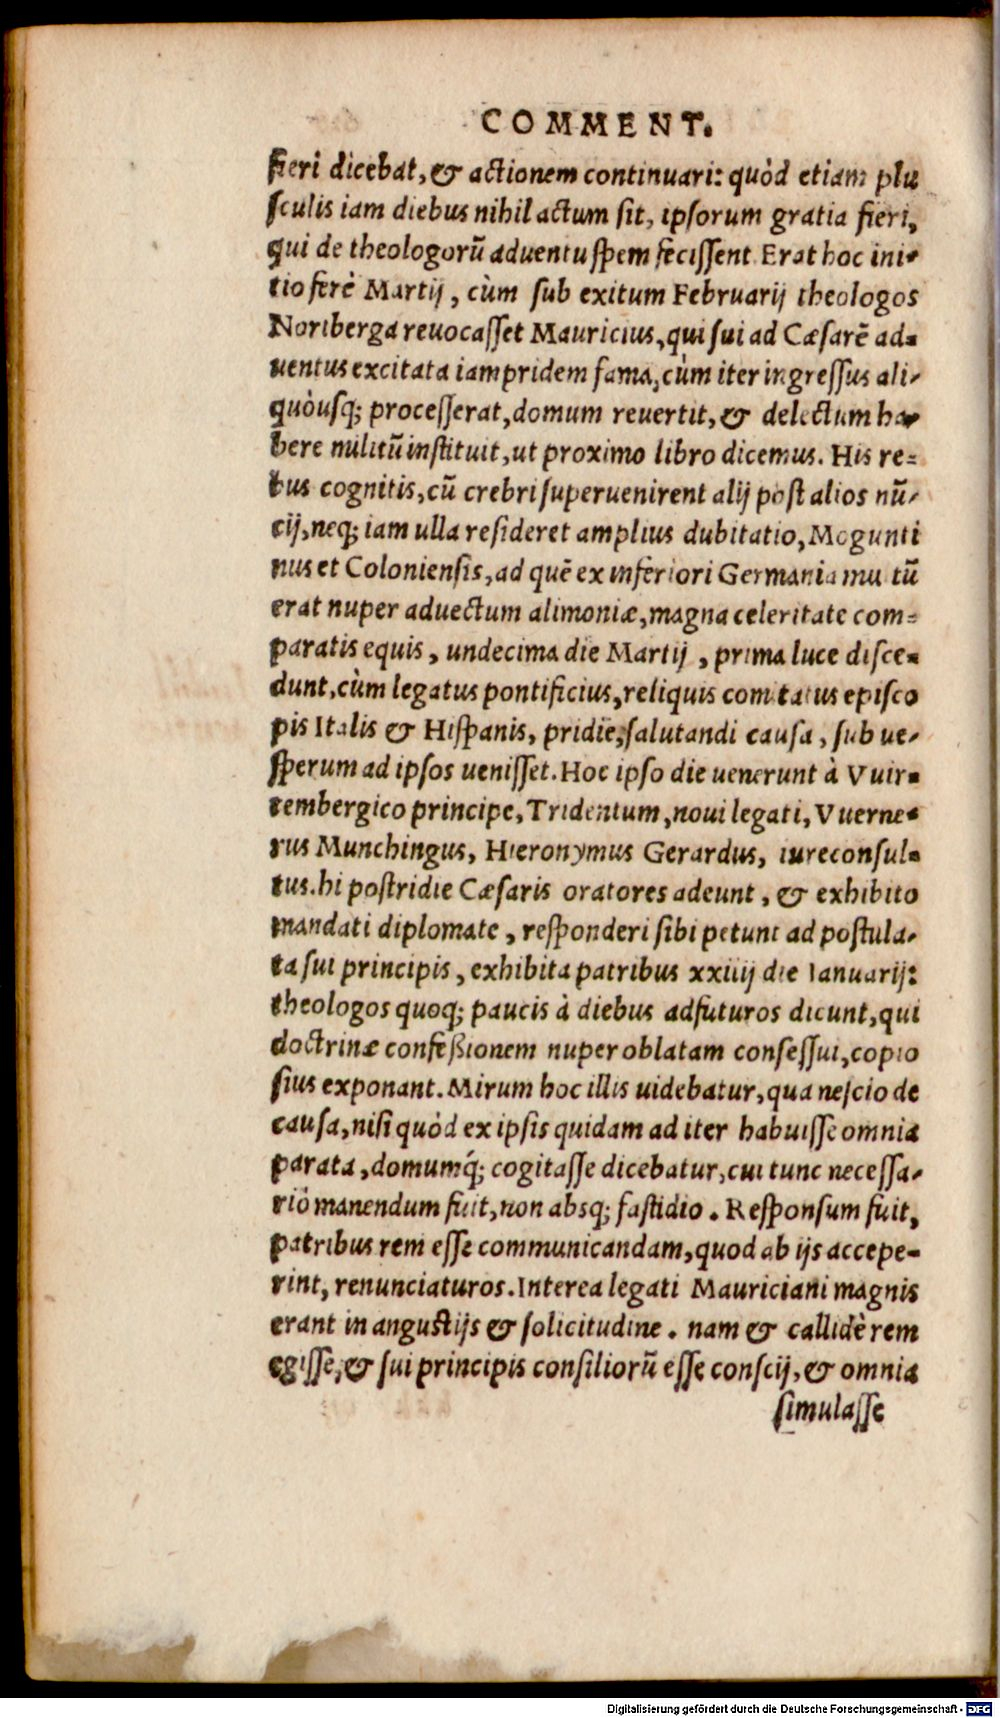 COMMENT.
fieri dicebat, & actionem continuari: quòd etiam plu
sculis iam diebus nihil actum sit, ipsorum gratia fieri,
qui de theologorũ aduentu spem fecissent. Erat hoc ini-
tio ferè Martij, cùm sub exitum Februarij theologos
Noriberga reuocasset Mauricius, qui sui ad Cæsarẽ ad-
uentus excitata iampridem fama, cùm iter ingressus ali-
quòusq; processerat, domum reuertit, & delectum ha-
bere militũ instituit, ut proximo libro dicemus. His re-
bus cognitis, cũ crebri superuenirent alij post alios nũ-
cij, neq; iam ulla resideret amplius dubitatio, Mogunti
nus et Coloniensis, ad quẽ ex inferiori Germania multũ
erat nuper aduectum alimoniæ, magna celeritate com-
paratis equis, undecima die Martij, prima luce disce-
dunt, cùm legatus pontificius, reliquis comitatus episco
pis Italis & Hispanis, pridie, salutandi causa, sub ue-
sperum ad ipsos uenisset. Hoc ipso die uenerunt à Vuir-
tembergico principe, Tridentum, noui legati, Vuerne-
rus Munchingus, Hieronymus Gerardus, iureconsul-
tus. hi postridie Cæsaris oratores adeunt, & exhibito
mandati diplomate, responderi sibi petunt ad postula-
ta sui principis, exhibita patribus xxiiij die Ianuarij:
theologos quoq; paucis à diebus adfuturos dicunt, qui
doctrinæ confeßionem nuper oblatam consessui, copio
sius exponant. Mirum hoc illis uidebatur, qua nescio de
causa, nisi quòd ex ipsis quidam ad iter habuisse omnia
parata, domumq́; cogitasse dicebatur, cui tunc necessa-
riò manendum fuit, non absq; fastidio. Responsum fuit,
patribus rem esse communicandam, quod ab ijs accepe-
rint, renunciaturos. Interea legati Mauriciani magnis
erant in angustijs & solicitudine. nam & callidè rem
egisse, & sui principis consiliorũ esse conscij, & omnia
simulasse
Digitalisierung gefördert durch die Deutsche Forschungsgemeinschaft - DFG